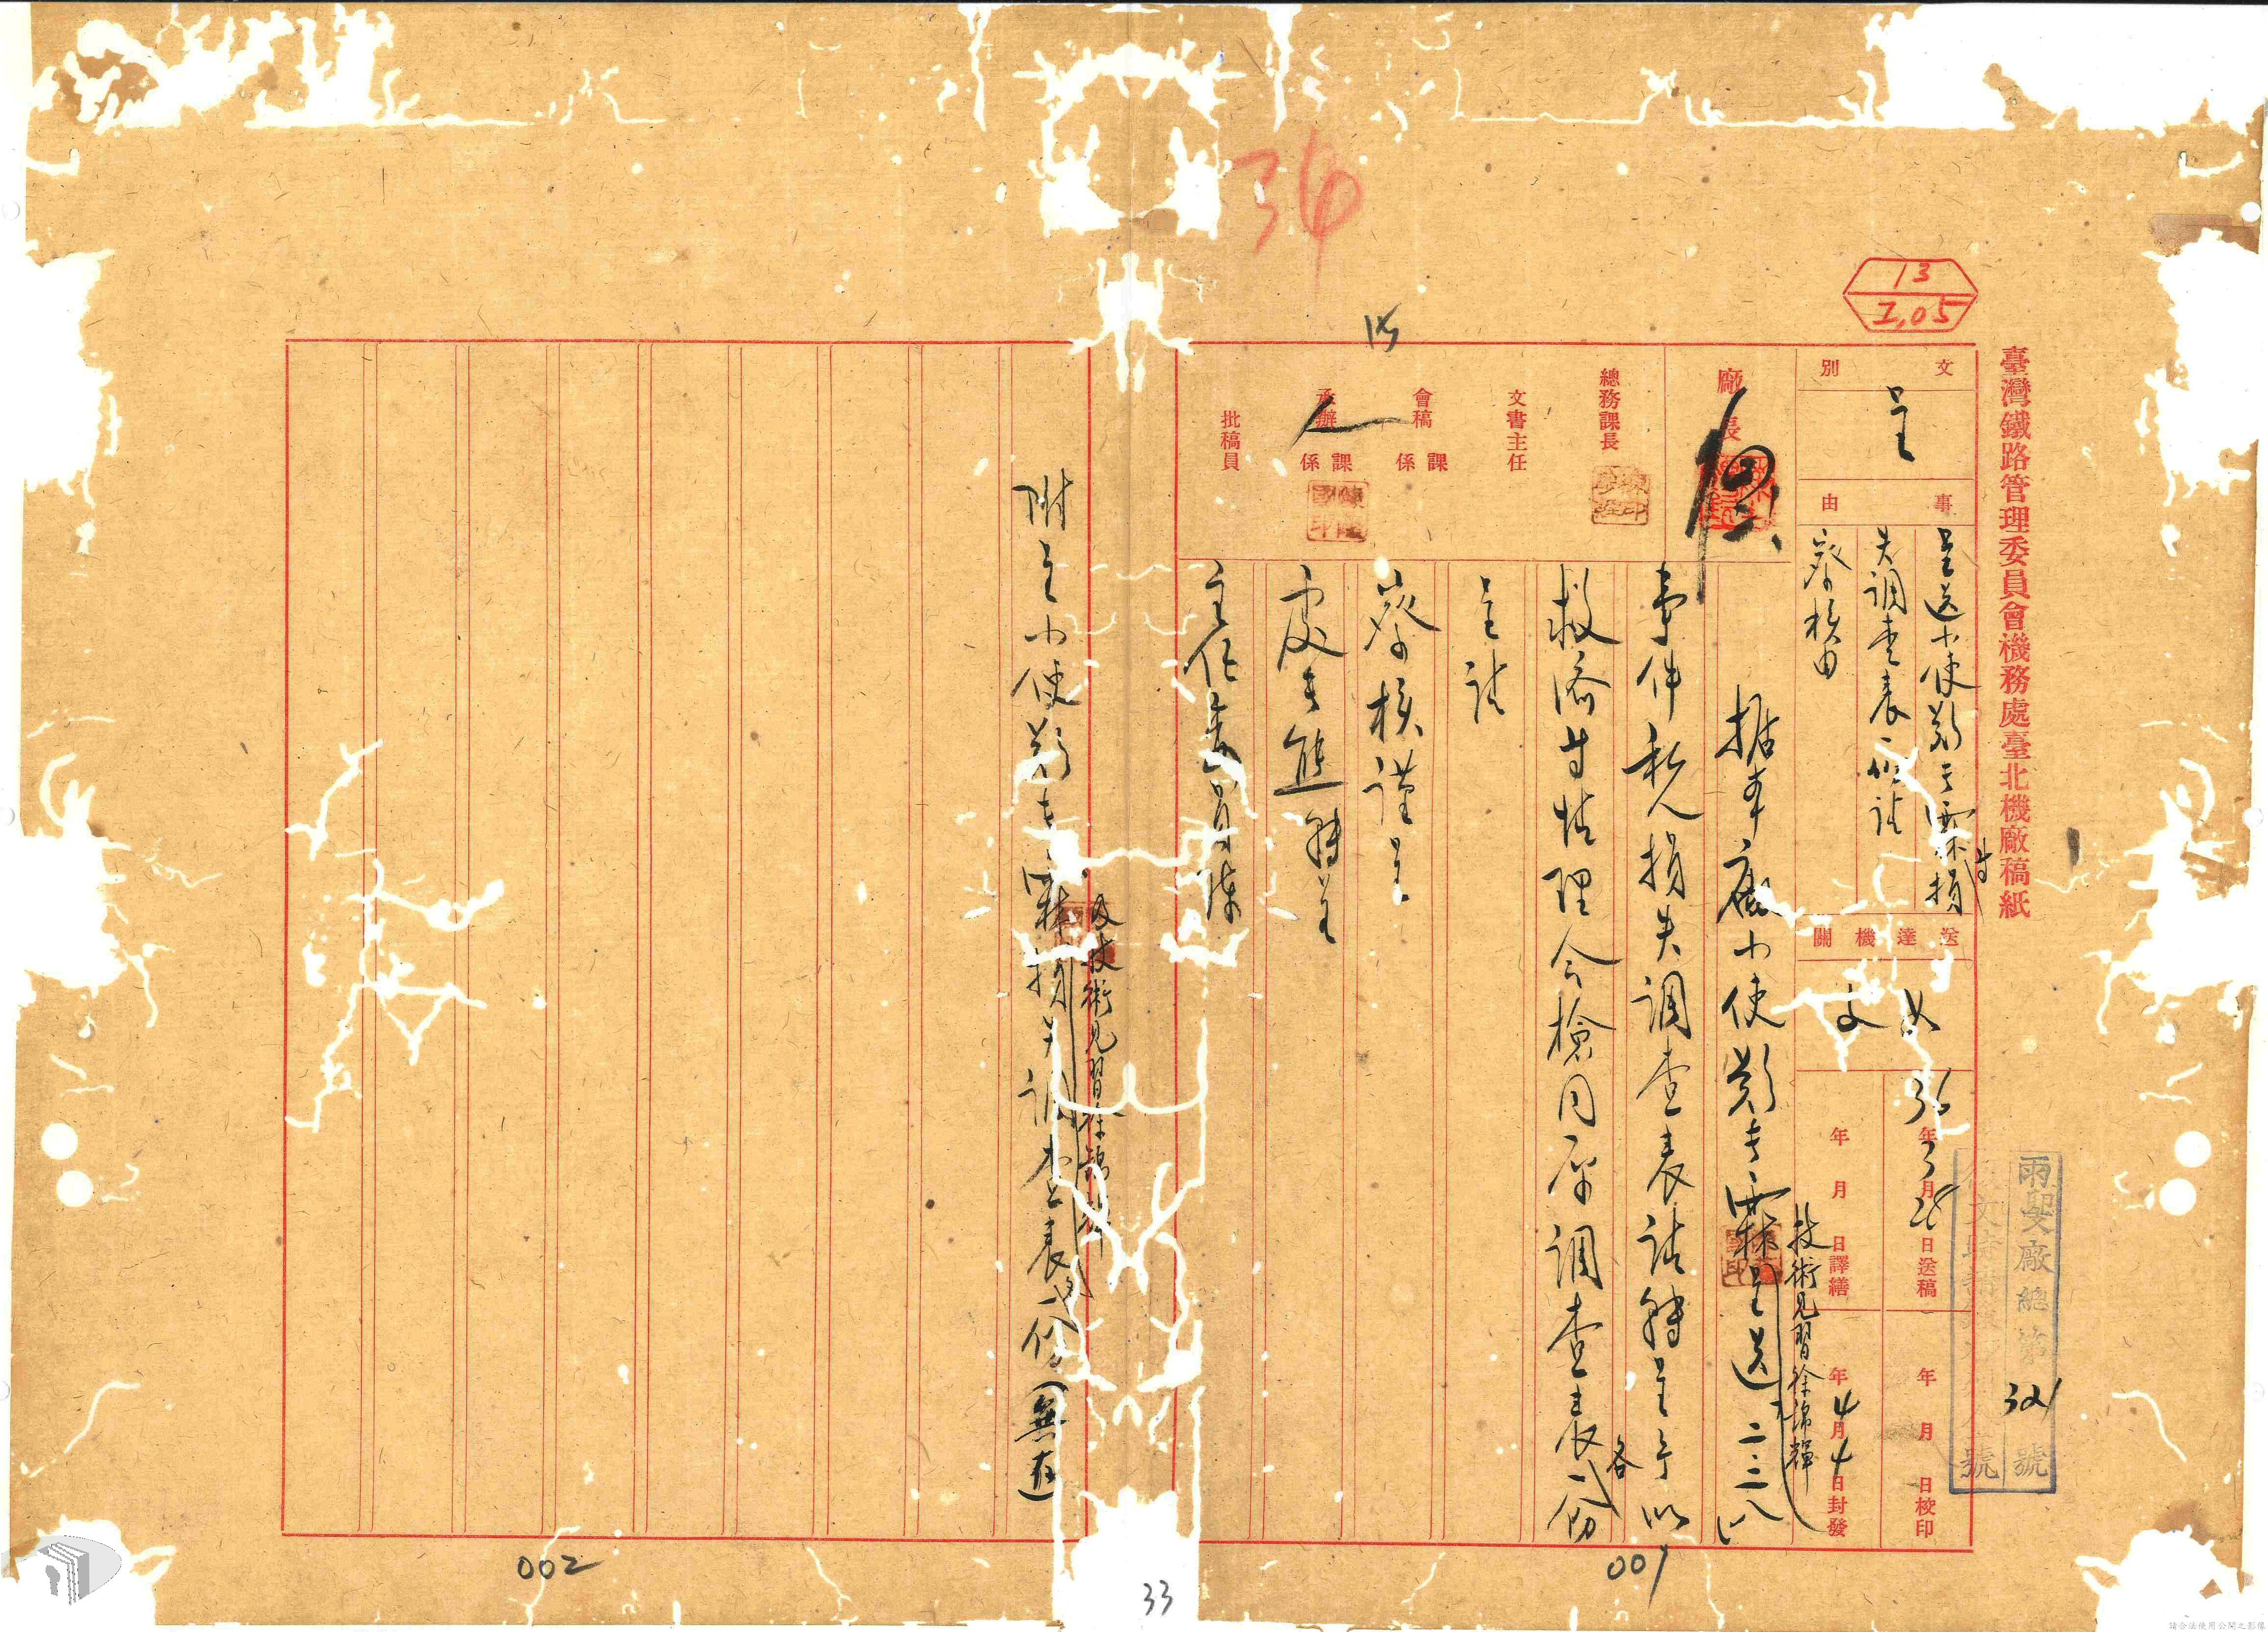 臺灣鐵路管理委員會機務處臺北機廠稿紙
13
I,05
36
文別
呈
事由
呈送小使鄭士霖等損
失調查表一份請
察核由
送達機關
如文
36年3月28日送稿
年月日譯繕
年月日校印
年4月4日封發
雨熙廠總第321號
號
廠長
總務課長
文書主任
會稿課係
承辦課係
批稿員
據本廠小使鄭士霖技術見習徐錦輝呈送二二八
事件私人損失調查表請轉呈予以
救濟等情理合檢同原調查表各一份
呈請
察核謹呈
處長熊轉呈
主任委員陳
附呈小使鄭士霖及技術見習徐錦輝損失調查表各一份(無存)
001
002
33